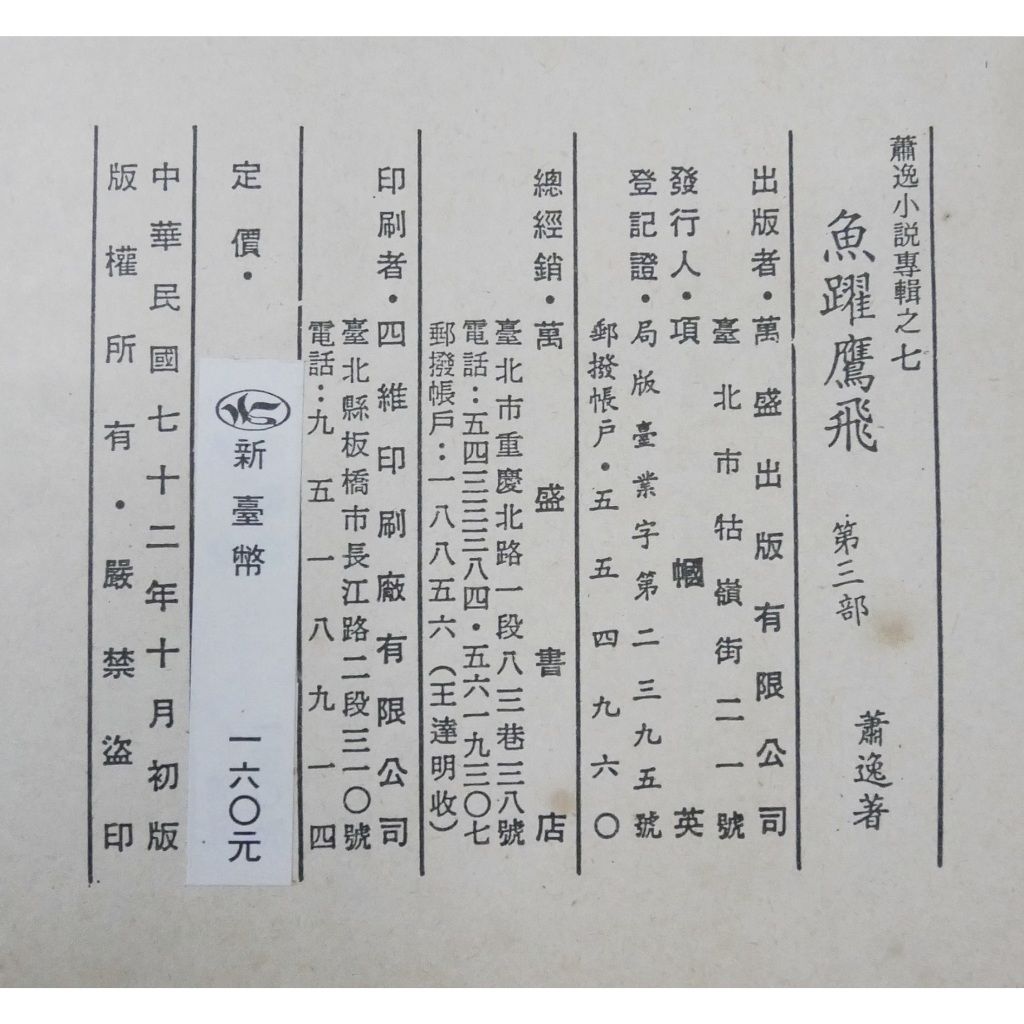 蕭逸小説專輯之七
魚躍鷹飛 第三部 蕭逸著
出版者・萬盛出版有限公司
臺北市牯嶺街二一號
發行人・項幗英
登記證・局版臺業字第二三九五號
郵撥帳戶・五五四九六〇
總經銷・萬盛書店
臺北市重慶北路一段八三巷三八號
電話：五四三三三八四・五六一九三〇七
郵撥帳戶：一八八五六（王達明收）
印刷者・四維印刷廠有限公司
臺北縣板橋市長江路二段三一〇號
電話：九五一八九一四
定價・
新臺幣 一六〇元
中華民國七十二年十月初版
版權所有・嚴禁盜印